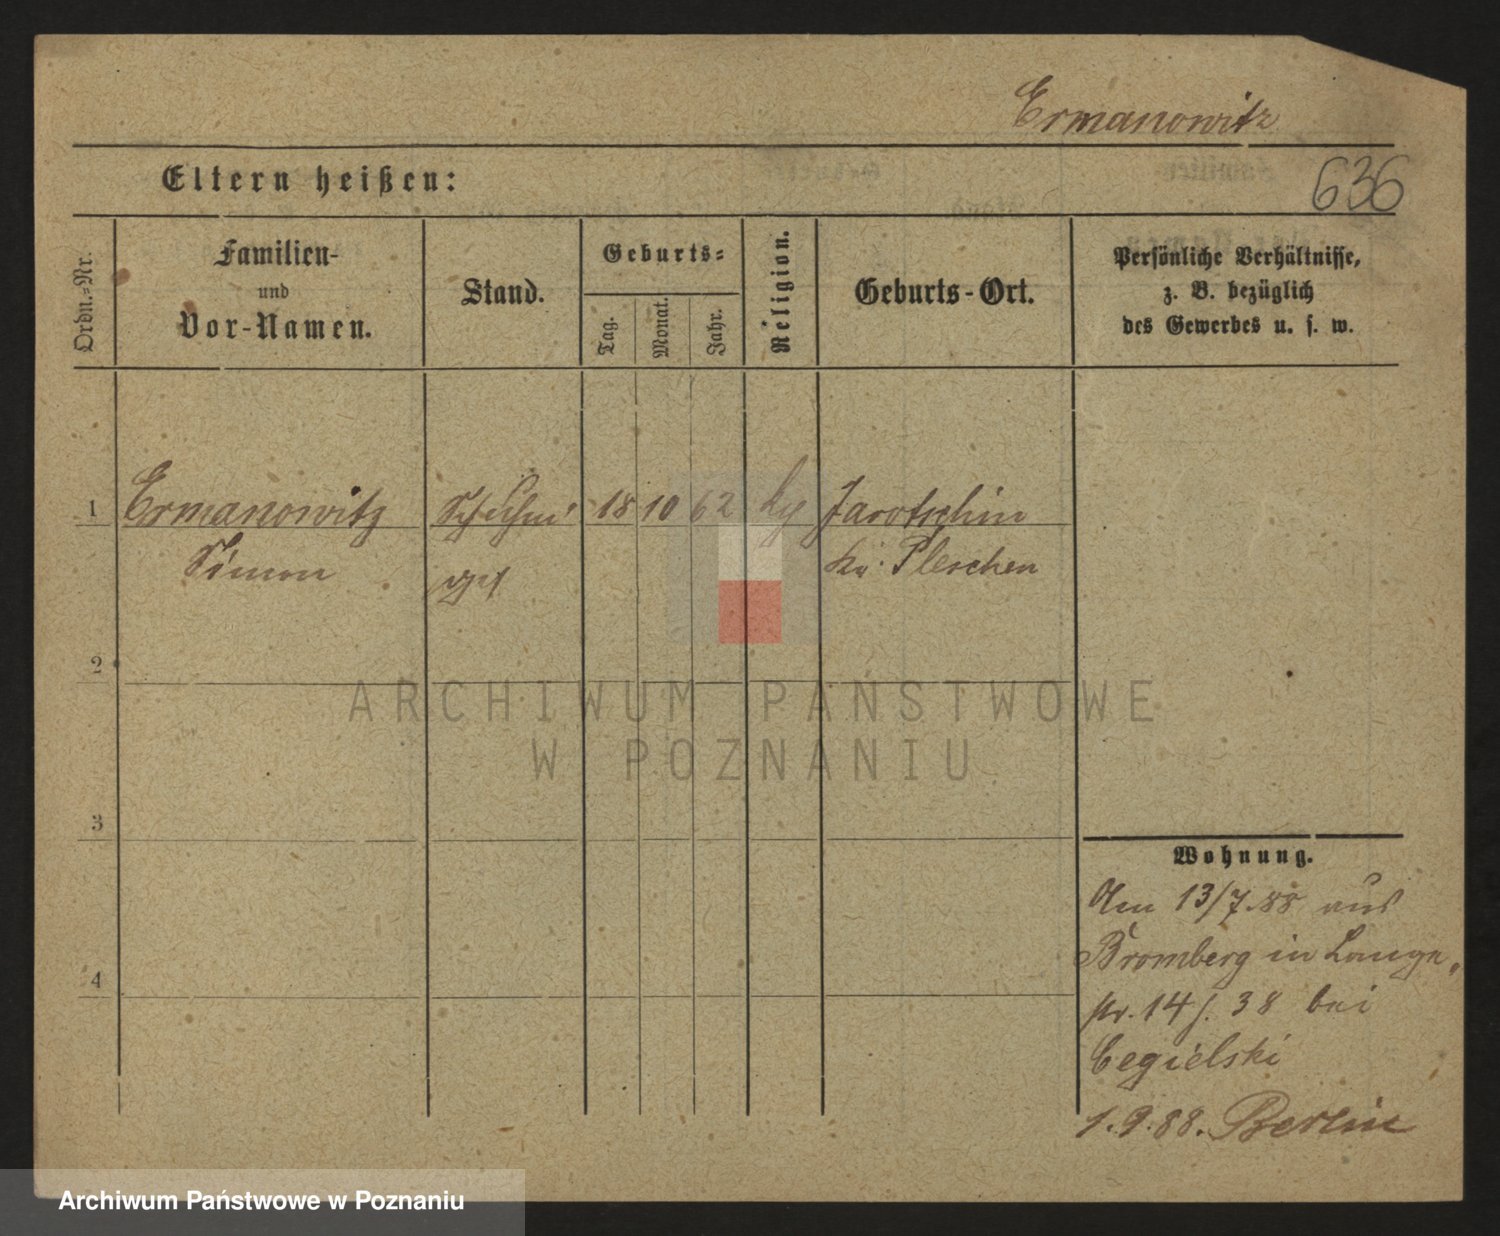 Ermanowitz
Eltern heißen:
636
Ordn.=Nr.
Familien-
und
Vor-Namen.
Stand.
Geburts=
Tag.
Monat.
Jahr.
Religion.
Geburts-Ort.
Persönliche Verhältnisse,
z. B. bezüglich
des Gewerbes u. s. w.
1 Ermanowitz 18 10 62 Jarotschin
Simon Pleschen
2
ARCHIWUM PAŃSTWOWE
W POZNANIU
3
4
Wohnung.
Am 13/7.88 aus
Bromberg in Lange
str. 14 38 bei
Cegielski
1.9.88. Berlin
Archiwum Państwowe w Poznaniu